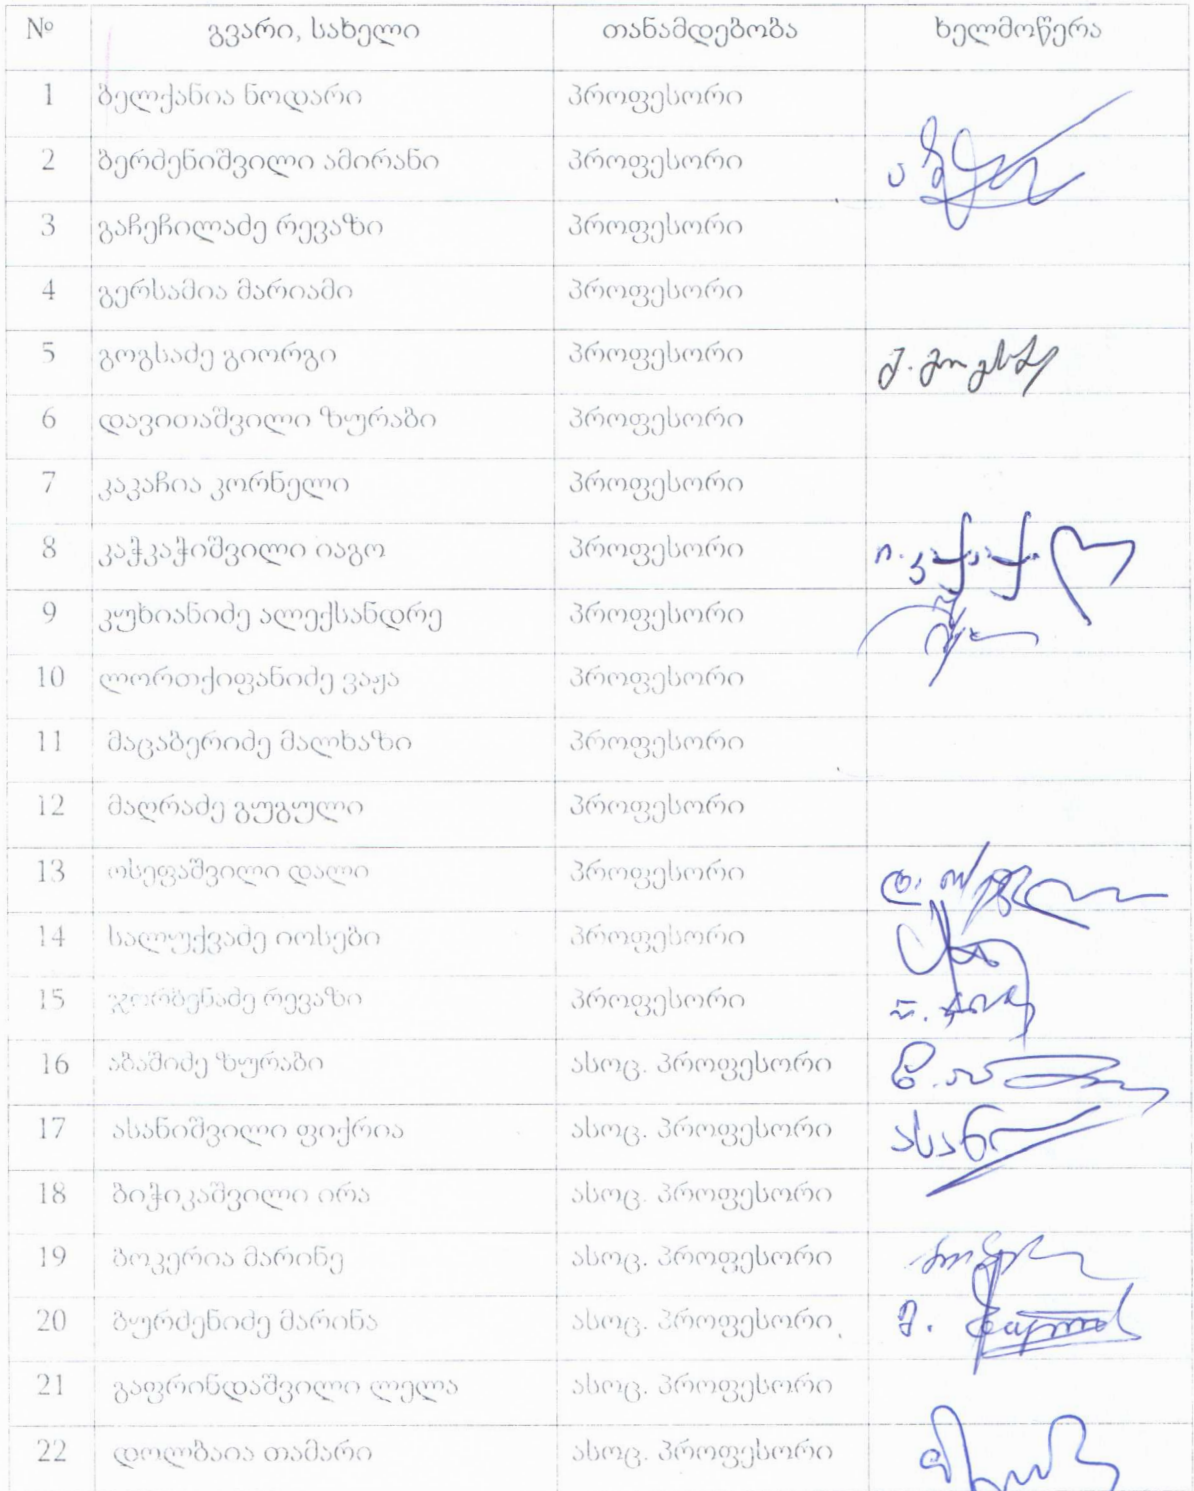 № გვარი, სახელი თანამდებობა ხელმოწერა
1 ბელქანია ნოდარი პროფესორი
2 ბერძენიშვილი ამირანი პროფესორი
3 გაჩეჩილაძე რევაზი პროფესორი
4 გერსამია მარიამი პროფესორი
5 გოგსაძე გიორგი პროფესორი
6 დავითაშვილი ზურაბი პროფესორი
7 კაკაჩია კორნელი პროფესორი
8 კაჭკაჭიშვილი იაგო პროფესორი
9 კუხიანიძე ალექსანდრე პროფესორი
10 ლორთქიფანიძე ვაჟა პროფესორი
11 მაცაბერიძე მალხაზი პროფესორი
12 მაღრაძე გუგული პროფესორი
13 ოსეფაშვილი დალი პროფესორი
14 სალუქვაძე იოსები პროფესორი
15 ჯორბენაძე რევაზი პროფესორი
16 აბაშიძე ზურაბი ასოც. პროფესორი
17 ასანიშვილი ფიქრია ასოც. პროფესორი
18 ბიჭიკაშვილი ირა ასოც. პროფესორი
19 ბოკერია მარინე ასოც. პროფესორი
20 ბურძენიძე მარინა ასოც. პროფესორი
21 გაფრინდაშვილი ლელა ასოც. პროფესორი
22 დოლბაია თამარი ასოც. პროფესორი